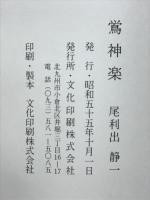 鴬神楽　尾利出　静一
発行・昭和五十五年十月一日
発行所・文化印刷株式会社
北九州市小倉北区井堀三丁目16―17
電話（〇九三）五八一―五〇八五
印刷・製本　文化印刷株式会社